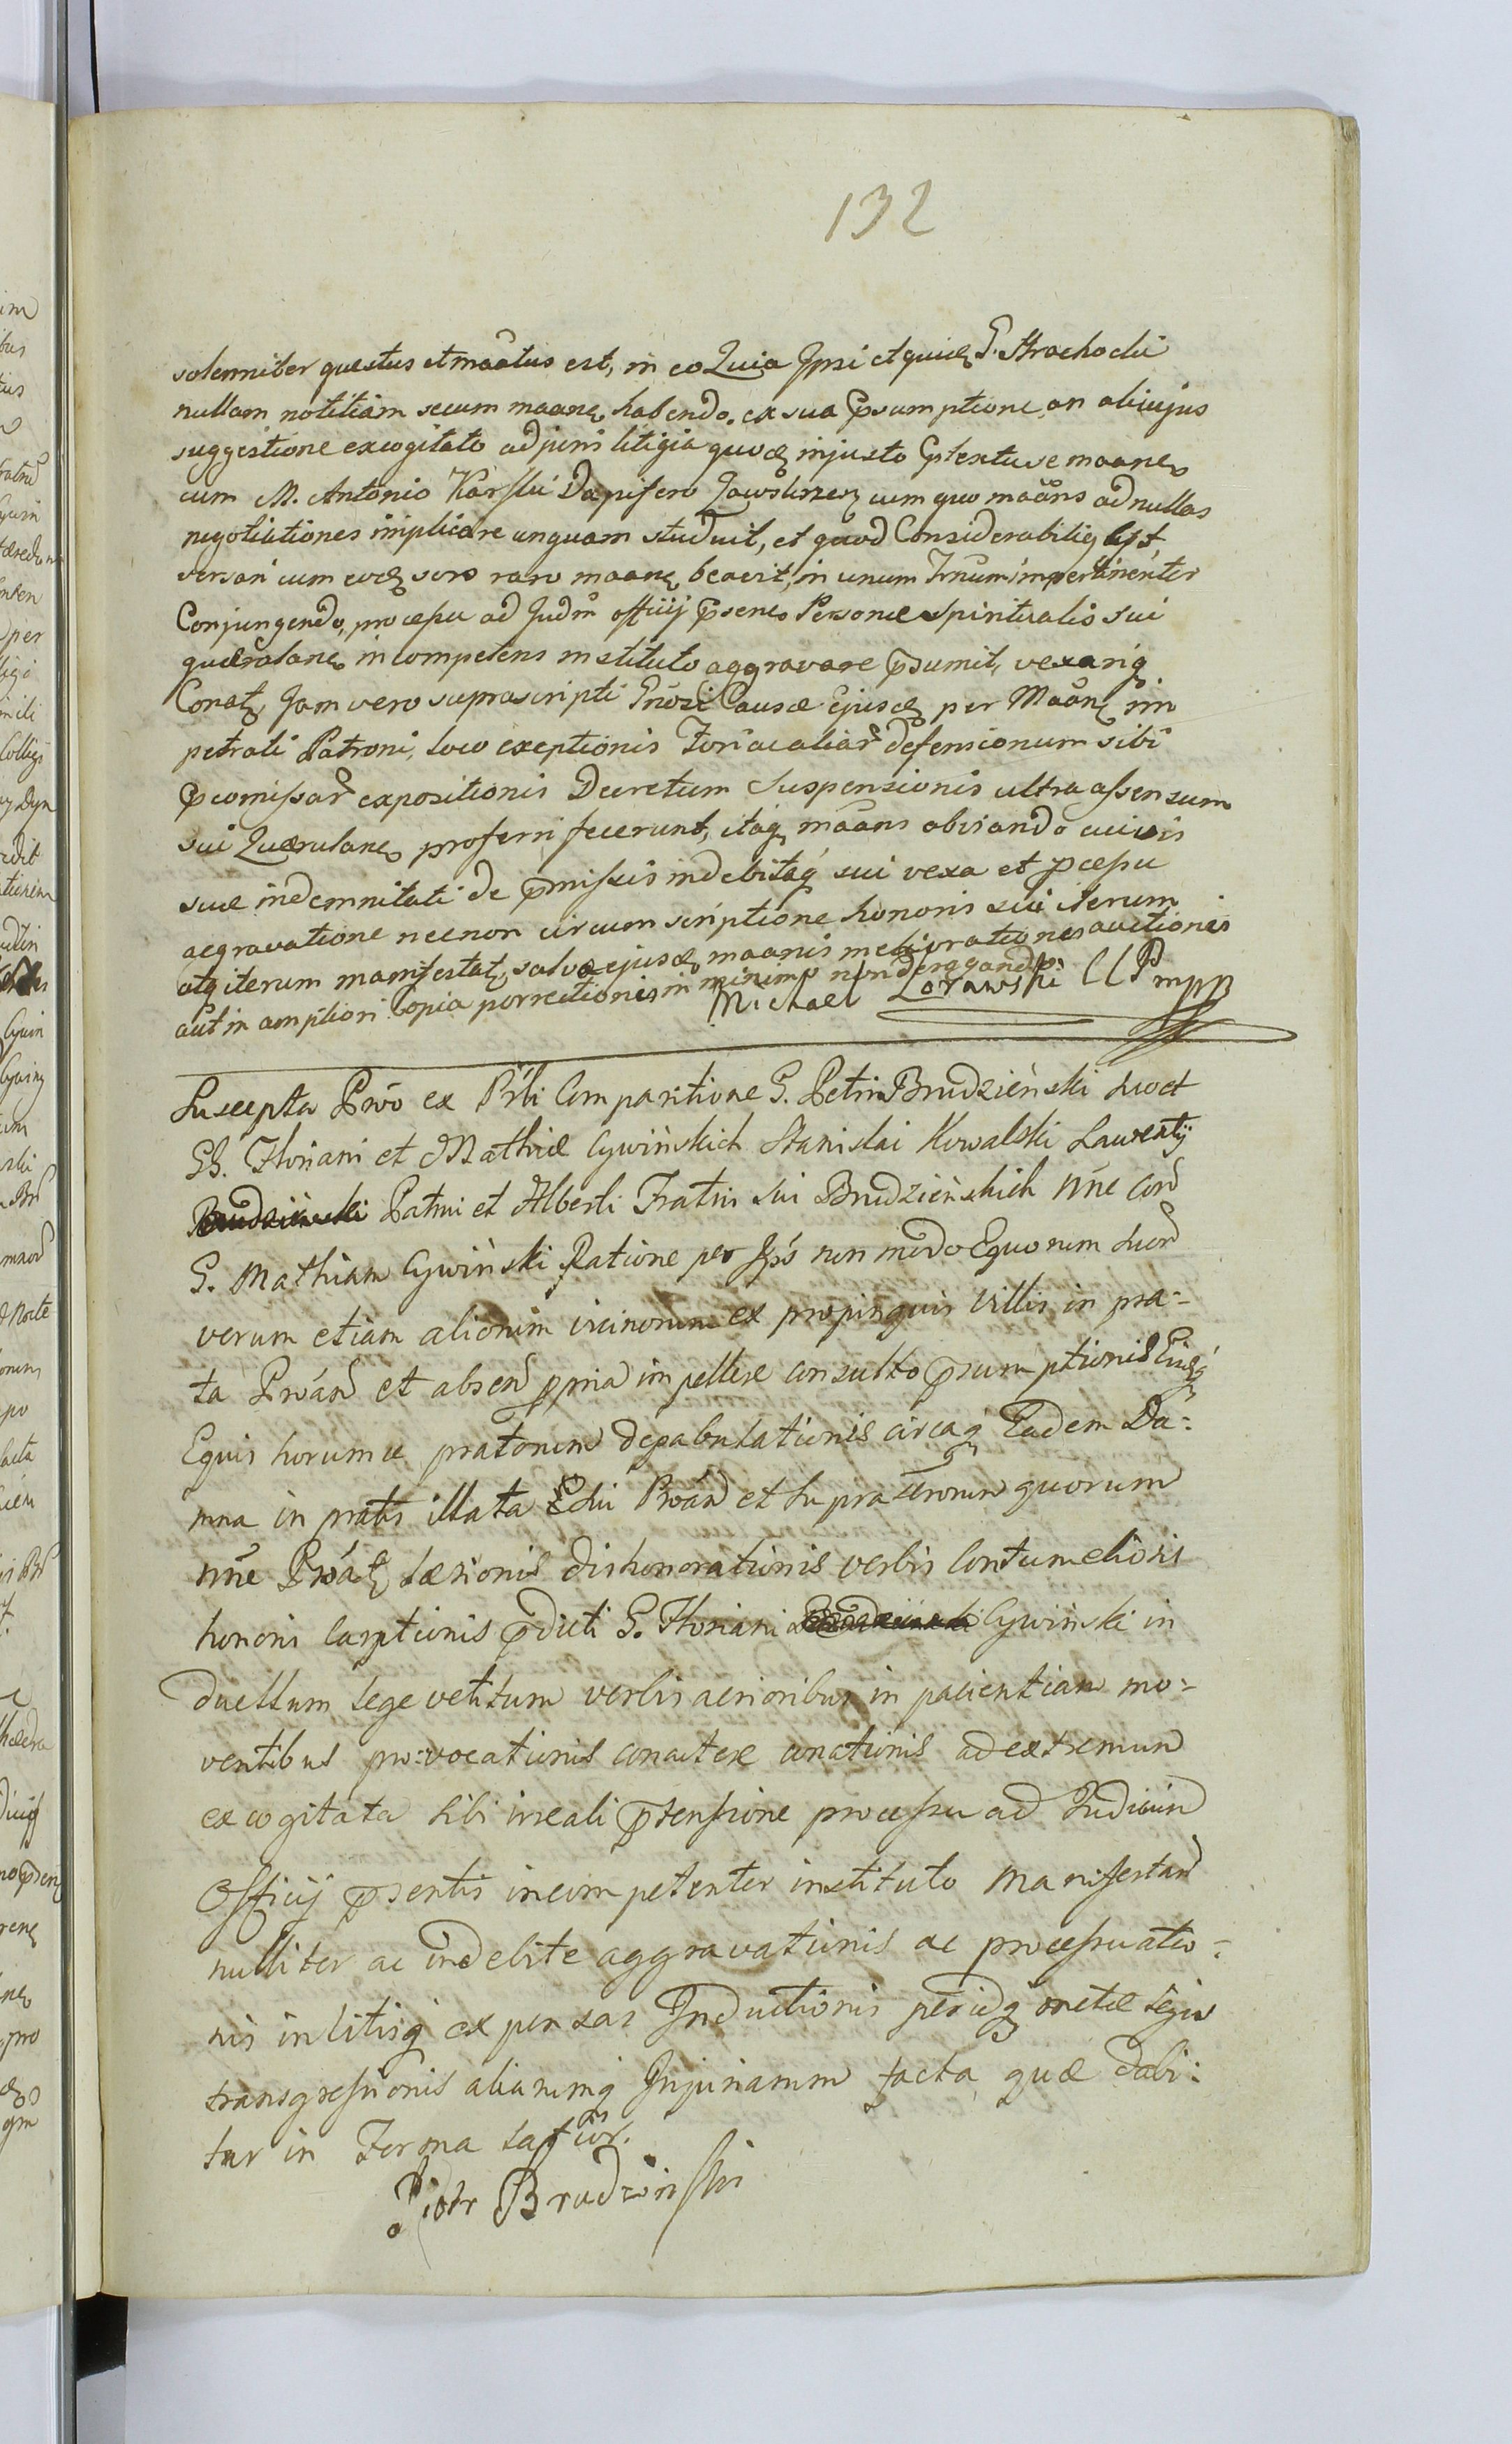 132
solenniter questus et maatus est, in eo Quia Ipsi et quidē G. Strachocki
nullam notitiam secum maane habendo, ex sua p̄sumptione, an alicujus
suggestione excogitato ad juris litigia quoq injusto p̄textu se maane
cum M. Antonio Karski Dapifero cum quo maans ad nullas
negotiationes implicare unquam studuit, et quod Considerabilig est
versari cum eodē vero raro maane in unum impertinenter
Conjungendo, processu ad Judm officij p̄sene Personae Spiritualis sui
quaerulane incompetens instituto aggravare p̄sumit, vexariq
Conat, Jam vero suprascripti Causae Ejusd per Maane im
petrati Patroni, loco exeptionis Fori ac aliar defensionum sibi
comissar expositionis Decretum Suspensionis ultra assensum
sui Quaerulane proferri fecerunt, itaq maans obviando
suae indemnitati de p̄missis indebitaq sui vexa et pcessu
aegravatione necnon circumscriptione honoris sui iterum
atq iterum manifestat, salva ejusd maanis meliorationis auctionis
aut in ampliori Copia porrectionis in minimo non derogando.
Michael mpp
Suscepta Prō ex Prli Comparitione G. Petri Brudzieński suo et
GG. Floriani et Mathiae Cywińskich Stanislai Kowalski Laurentij
Brudzieński Patrui et Alberti Fratris sui Brudzieńskich nne
G. Mathiam Cywiński Ratione per Ipś non modo Equorum suor
verum etiam aliorum vicinorum ex propinquis villis in pra-
ta et absen ppria impellere consulto p̄sumptionis
Equis horumce pratorum depabulationis circaq Eadem Da:
mna in pratis illata et supra quorum
nne laesionis dishonorationis verbis Contumeliosis
honoris carptionis p̄dicti G. Floriani Brudzieński Cywiński in
duellum lege vetitum verbis acrioribus in pacientiam mo:
ventibus pro:vocationis conationis ad extremum
excogitata sibi irreali p̄tensione processu ad Judicium
Officij p̄sentis incompetenter instituto Manifestan
nulliter ac indebite aggravationis ac processuatio-
nis in litisq expensas Inductionis legis
transgressionis aliarumq Injuriarum facta quae dabi:
tur in Forma
Piotr Brudzinski